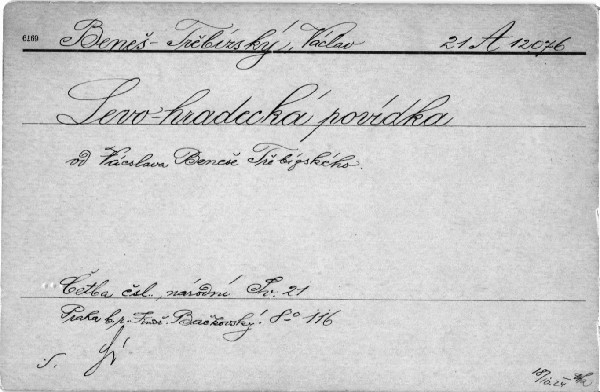 6169 Beneš-Třebízský, Václav 21 A 12076
Levo-hradecká povídka
od Václava Beneše Třebízského.
Četba čsl. národní Sv. 21
Praha b.r. Jindř. Bačkovský. 8° 116